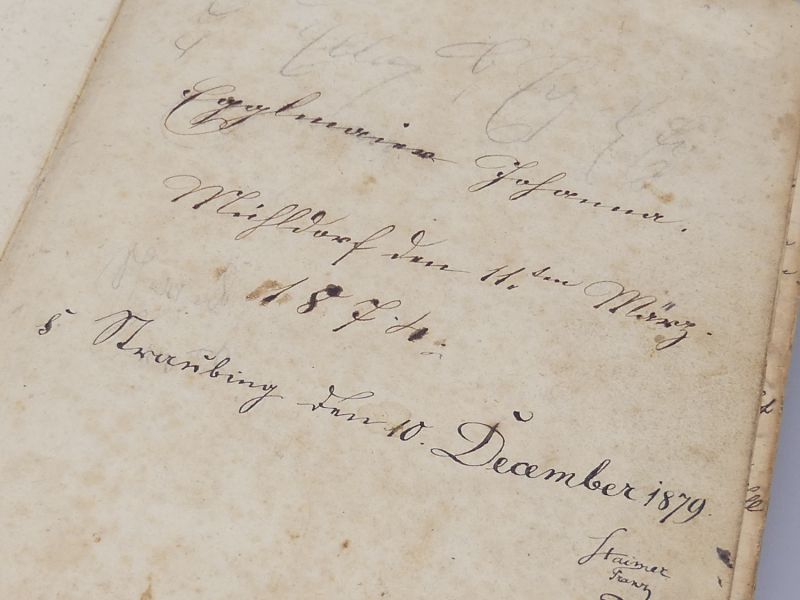 Egglmaier Johanna.
Mühldorf den 11.ten März.
1874.
Straubing den 10. December 1879.
Staimer
Franz